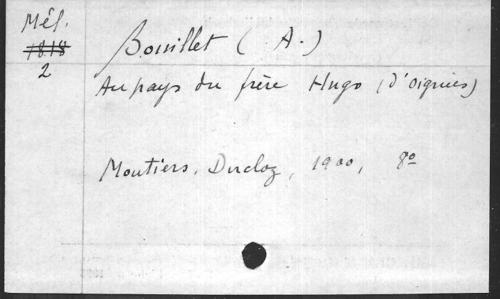 Mél.
1818
2
Bouillet (A.)
Au pays du frère Hugo (d'Oignies)
Moutiers, Ducloz, 1900, 8º